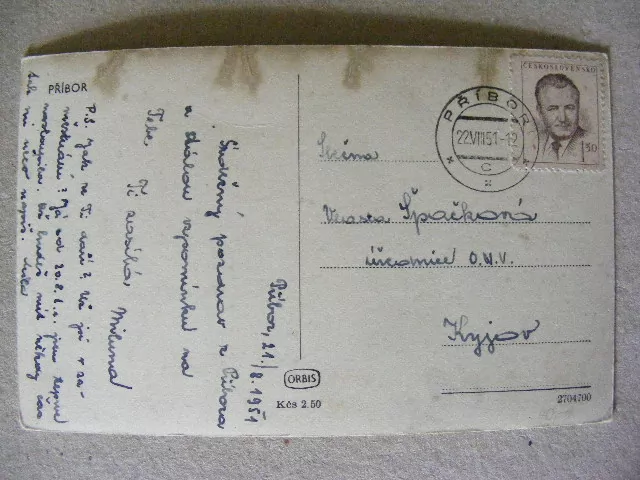 PŘÍBOR
Příbor, 21/8.1951
Srdečný pozdrav z Příbora
a stálou vzpomínku na
Tebe Ti zasílá Milena
P.S. Jak se Ti daří? Už jsi v za-
městnání? Já od 20.8. t. r. jsem teprve
nastoupila. Až budeš mít někdy čas
tak mi něco napiš.
ČESKOSLOVENSKO
1,50
PŘÍBOR
22.VIII.51-12
C
Slečna
Špačková
úřednice O.N.V.
Kyjov
ORBIS
Kčs 2.50
2704700